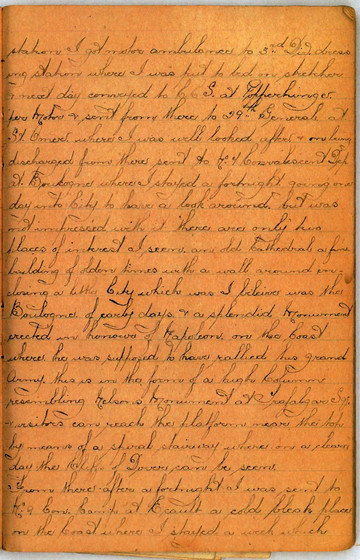 station I got motor ambulance to 3rd Div dress
ing station where I was put to bed on stretcher
& next day conveyed to C.C.S. at
per Motor & sent from there to 59th Generals at
St Omer where I was well looked after & on being
discharged from there sent to No 7 Convalescent Dep
at Boulogne where I stayed a fortnight, going one
day into City to have a look around, but was
not impressed with it there are only two
places of interest I seen, an old Cathedral a fine
building of olden times with a wall around en-
closing a little City which was I believe was the
Boulogne of early days. & a splendid Monument
erected in honour of Napoleon. on the Coast
where he was supposed to have rallied his grand
Army. this is in the form of a high Column
resembling Nelsons Monument at Trafalgar Sq.
& visitors can reach the platform near the top
by means of a spiral stairway where on a clear
day the Cliffs of Dover can be seen.
From there after a fortnight I was sent to
Con. Camp at Ecault a cold bleak place
on the Coast where I stayed a week which